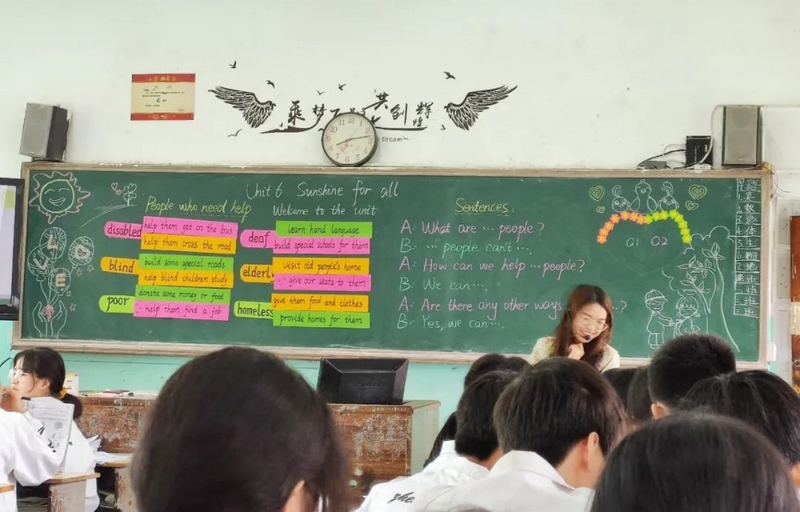 乘梦
共创辉
DREAM
Unit 6 Sunshine for all
People who need help
Welcome to the unit
Sentences
disabled
help them get on the bus
help them cross the road
blind
build some special roads
help blind children study
poor
donate some money or food
help them find a job
deaf
learn hand language
build special schools for them
elderly
visit old people's home
give our seats to them
homeless
give them food and clothes
provide homes for them
A: What are ... people?
B: ... people can't ...
A: How can we help ... people?
B: We can ...
A: Are there any other ways ?
B: Yes, we can ...
G1 G2
L O V E